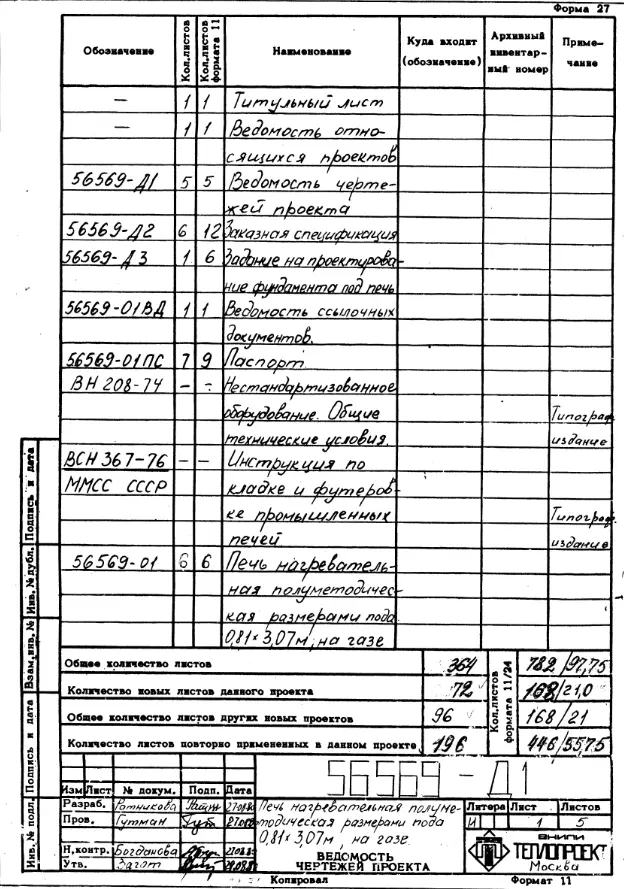 Форма 27
Обозначение Кол.листов Кол.листов формата 11 Наименование Куда входит (обозначение) Архивный инвентар-ный номер Приме-чание
— 1 1 Титульный лист
— 1 1 Ведомость отно-
сящихся проектов
56569-Д1 5 5 Ведомость черте-
жей проекта
56569-Д2 6 12 Заказная спецификация
56569-Д3 1 6 Задание на проектирова-
ние фундамента под печь
56569-01ВД 1 1 Ведомость ссылочных
документов.
56569-01ПС 7 9 Паспорт
ВН 208-74 — — Нестандартизованное
оборудование. Общие Типограф.
технические условия. издание
ВСН 367-76 — — Инструкция по
ММСС СССР кладке и футеров-
ке промышленных Типограф.
печей издание
56569-01 6 6 Печь нагреватель-
ная полуметодичес-
кая размерами пода
0,81×3,07м, на газе
Общее количество листов 364 782/97,75
Количество новых листов данного проекта 72 168/21,0
Общее количество листов других новых проектов 96 168/21
Количество листов повторно примененных в данном проекте 196 446/55,75
Кол.листов формата 11/24
56569-Д1
Изм Лист № докум. Подп. Дата
Разраб. Ротникова Печь нагревательная полуме-
Пров. Гутман тодическая размерами пода
0,81×3,07м, на газе
Н.контр. Богданова ВЕДОМОСТЬ
Утв. ЧЕРТЕЖЕЙ ПРОЕКТА
Литера Лист Листов
И 1 5
ВНИПИ
ТЕПЛОПРОЕКТ
Москва
Копировал Формат 11
Инв. № подл. Подпись и дата Взам.инв. № Инв. № дубл. Подпись и дата